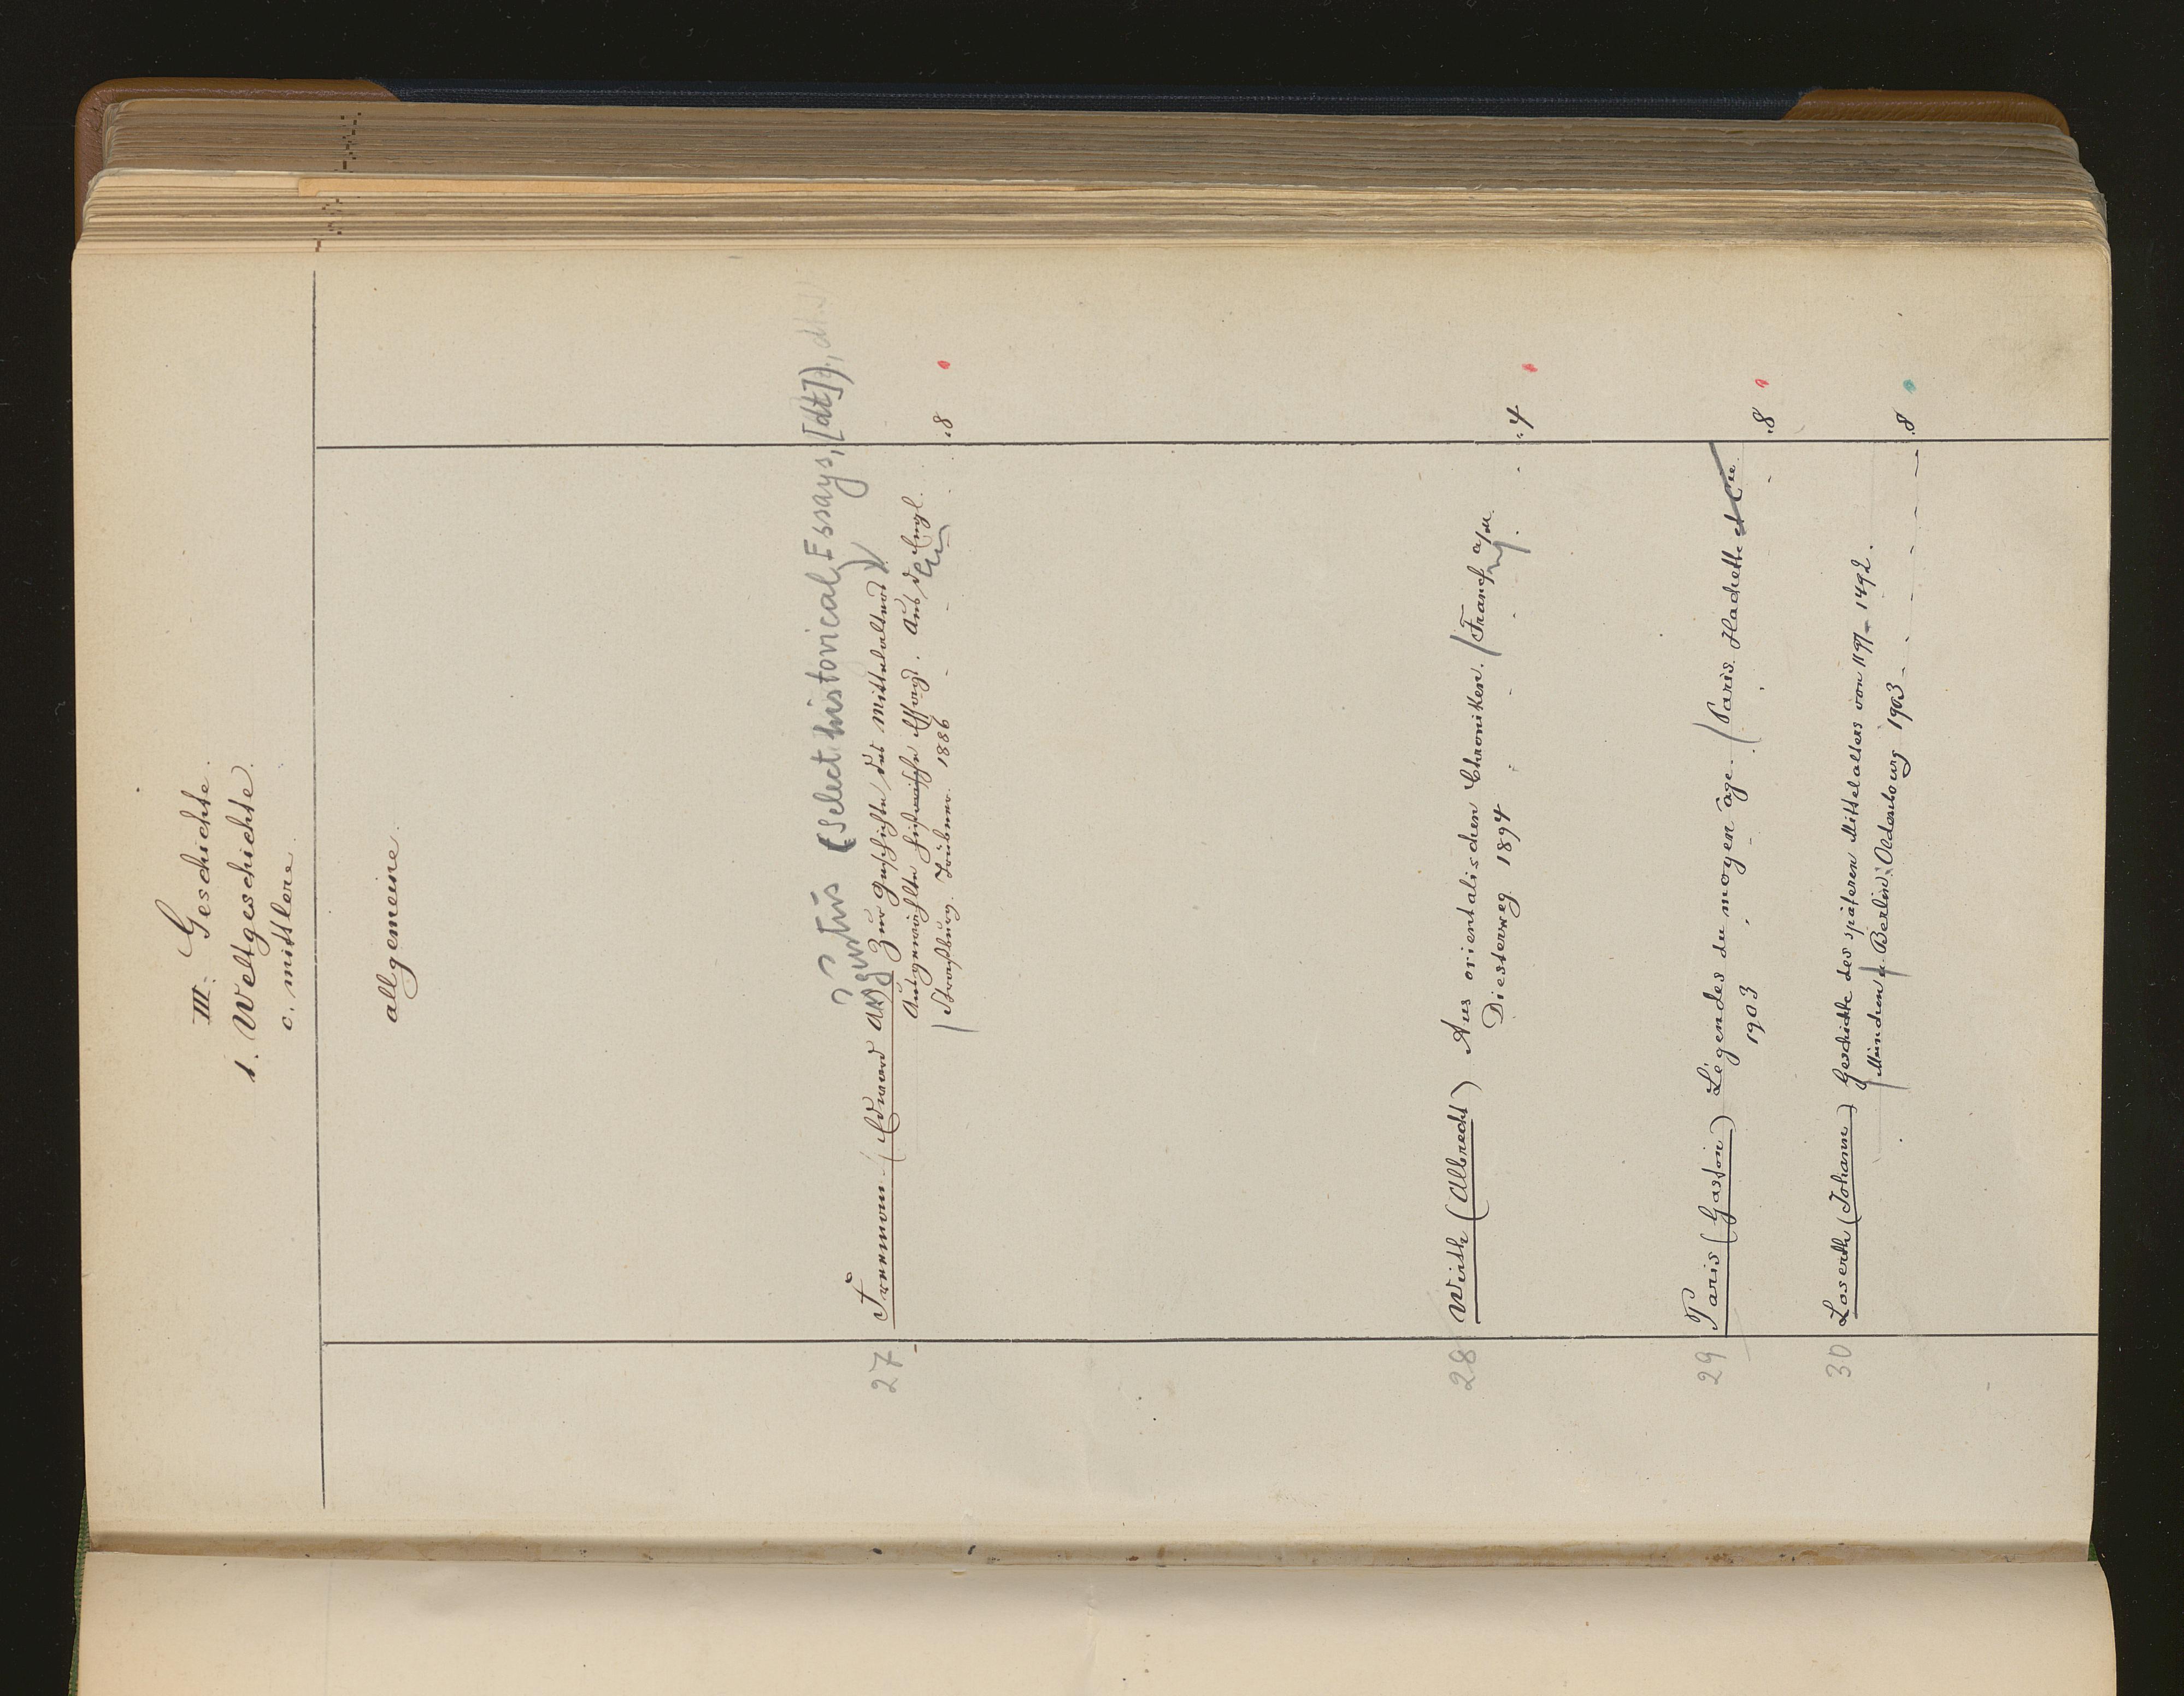 III. Geschichte.
1. Weltgeschichte.
c. mittlere.
allgemeine.
?
(Select historical Essays, [dt]),
gustus
27 Freeman (Edward A.) Zur Geschichte des Mittelalters.
Ausgewählte historische Essays. Aus d. Engl.
/ Straßburg. Trübner. 1886 - - . 8
28 Wirth (Albrecht) Aus orientalischen Chroniken. / Frankf. a/M.
Diesterweg. 1894 . . . . 4
29 Paris (Gaston) Légendes du moyen âge. / Paris. Hachette et Cie.
1903 . . . . 8
30 Loserth (Johann) Geschichte des späteren Mittelalters von 1197-1492.
/ München u. Berlin: Oldenbourg 1903 - - - - - - 8